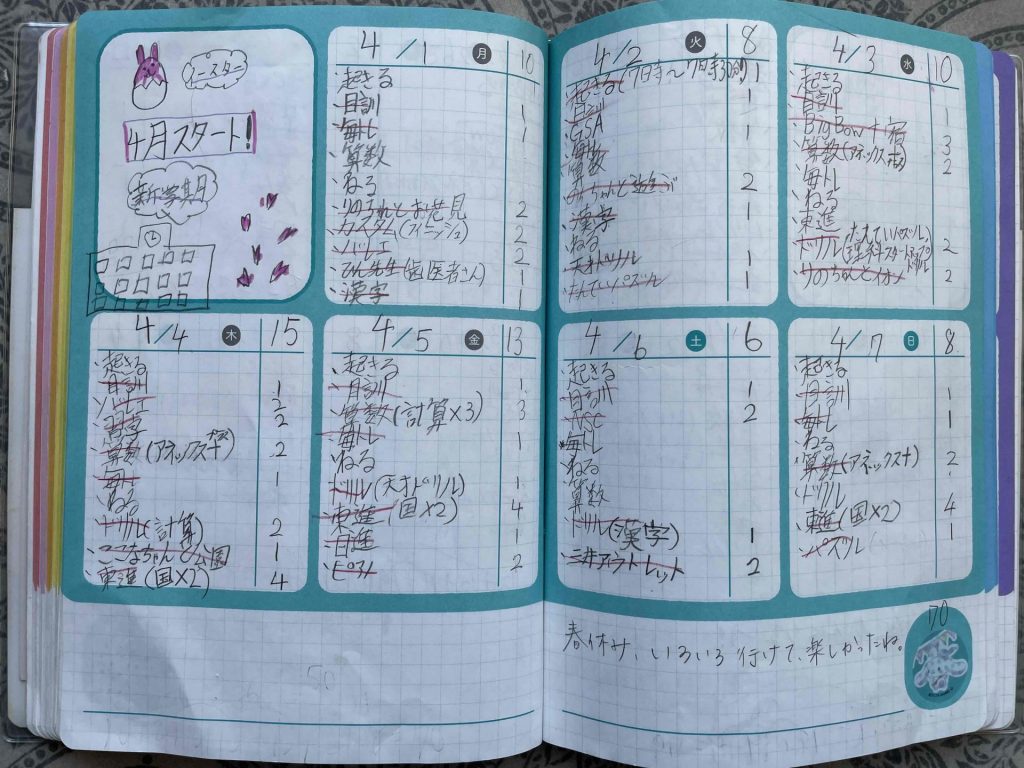 イースター
4月スタート!
新学期
4/1 月 10
・起きる
・目訓 1
・毎トレ 1
・算数
・ねる
・りのちゃんとお花見 2
・カスタム(フィニッシュ) 2
・バレエ 2
・てん先生(歯医者さん) 1
・漢字 1
4/2 火 8
・起きる(7時〜7時30分) 1
・目訓 1
・GSA 1
・算数
2
・漢字
・ねる
・天才ドリル 1
・たんていパズル 1
4/3 水 10
・起きる
・目訓 1
・Big Bow 3
・算数(アネックス 2
・毎トレ
・ねる
・東進
・ドリル(たんていパズル) 2
(理科スタートドリル)
・りのちゃんとイオン 2
4/4 木 15
・起きる
・目訓 1
・バレエ 2
2
・算数(アネックス 2
・毎トレ 1
・ねる
・ドリル(計算) 2
・ここなちゃんと公園 1
・東進(国×2) 4
4/5 金 13
・起きる
・目訓 1
・算数(計算×3) 3
・毎トレ 1
・ねる
・ドリル(天才ドリル) 1
・東進(国×2) 4
・日進 1
・ピアノ 2
4/6 土 6
・起きる
・目訓 1
・NSC 2
・毎トレ
・ねる
・算数
・ドリル(漢字) 1
・三井アウトレット 2
4/7 日 8
・起きる
・目訓 1
・毎トレ 1
・ねる
・算数(アネックス 2
・ドリル
・東進(国×2) 4
・パズル 1
春休み、いろいろ行けて、楽しかったね。
70